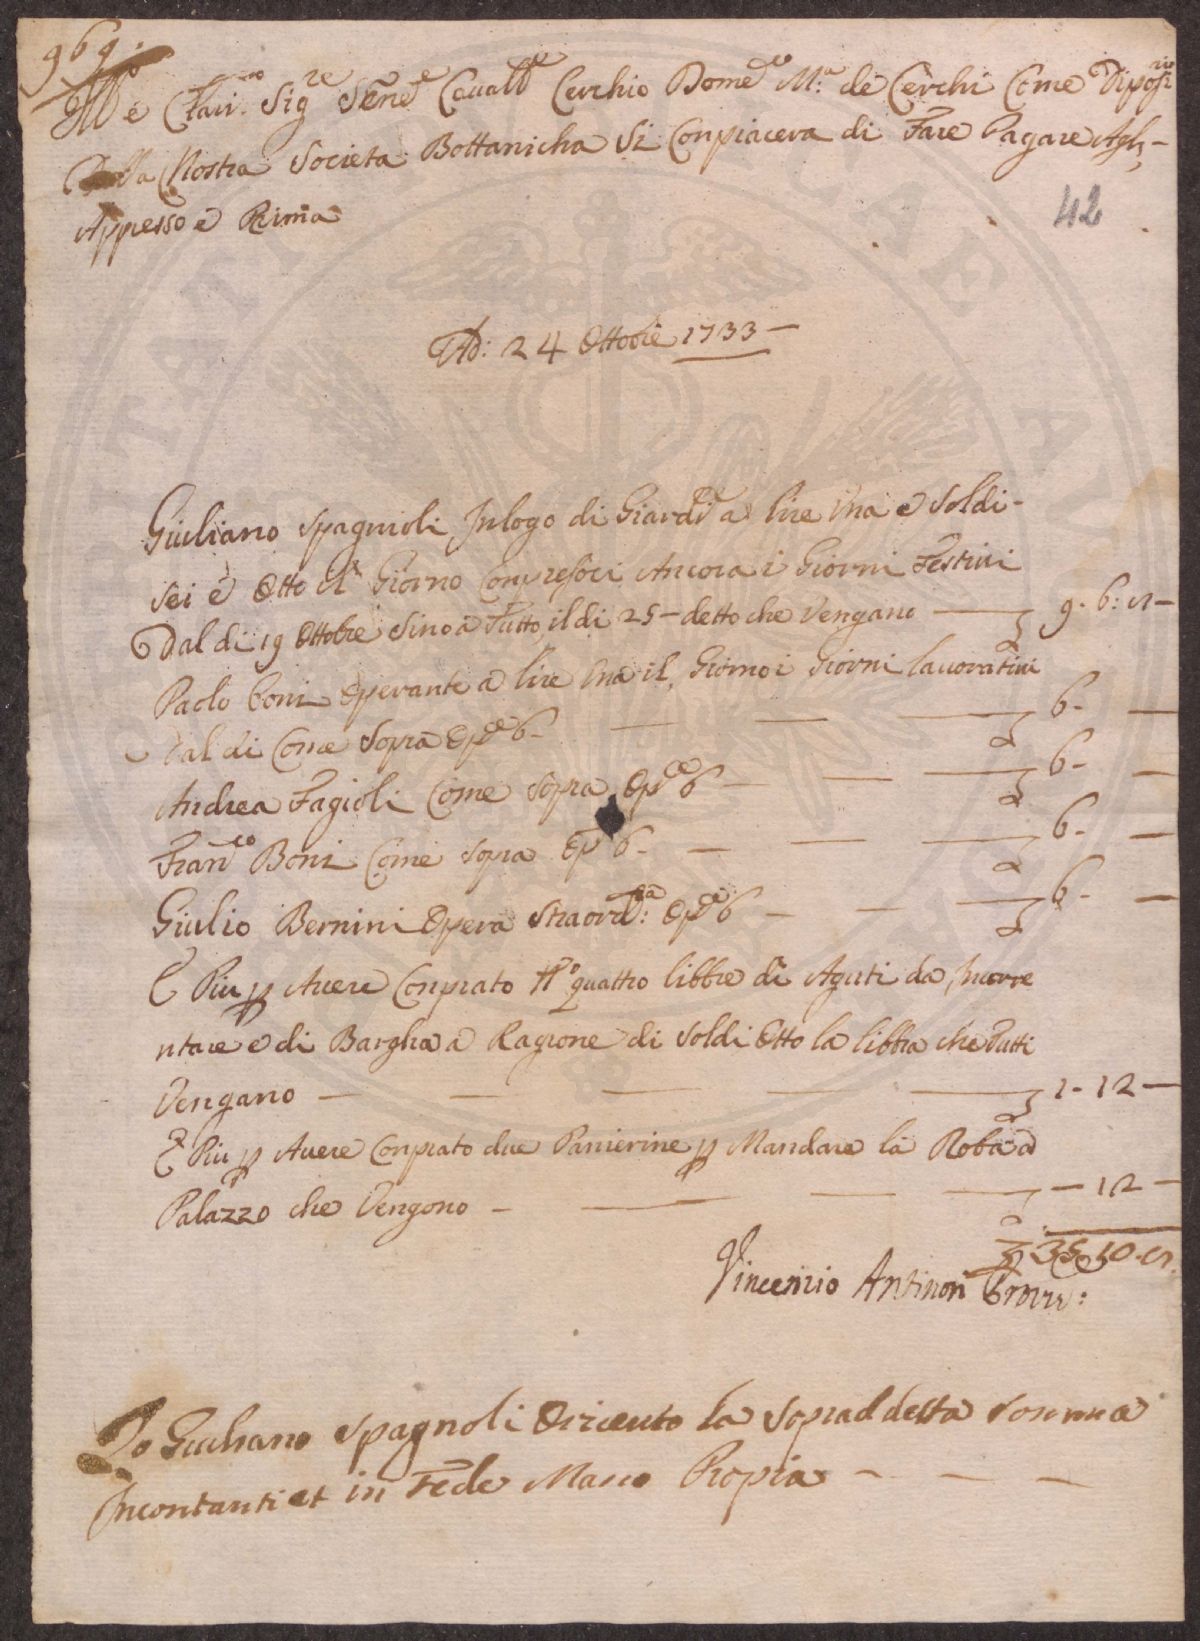 969.
Ill.mo e Clari.mo Sig.re Sen.e Cavall.e Cerchio Dome.co M.a de Cerchi Come Diposi.rio
Della Nostra Societa Bottanicha Si Conpiacera di Fare Pagare Agl,
Appresso e Rima
42
Ad: 24 Ottobre 1733 —
Giuliano Spagnioli Inlogo di Giard.e a lire Una e Soldi-
sei e Otto il Giorno Conpresoci Ancora i Giorni Festivi
Dal di 19 Ottobre Sino a Tutto il di 25 — detto che Vengano — 9. 6: 8 —
Paolo Boni Operante a lire Una il Giorno i Giorni lavorativi
Dal di Come Sopra Op.e 6 — — — 6 - —
Andrea Fagioli Come Sopra Op.e 6 — — — 6 - —
Fran.co Boni Come Sopra Op.e 6 - — — — 6 - —
Giulio Bernini Opera Straord.ria: Op.e 6 — — — 6 - —
E Piu p Avere Conprato N.o quattro libbre di Aguti da
ntare e di Bargha a Ragione di Soldi Otto la libbra che Tutti
Vengano — — — — — 1 - 12 —
E Piu p Avere Conprato due Panierine p Mandare la Roba a
Palazzo che Vengono — — — — — 12 —
35. 10. 8.
Vincenzio Antinori Provv:
Io Giuliano Spagnoli O riceuto la Sopraddetta Somma
Incontanti et in Fede Mano Propia — — —